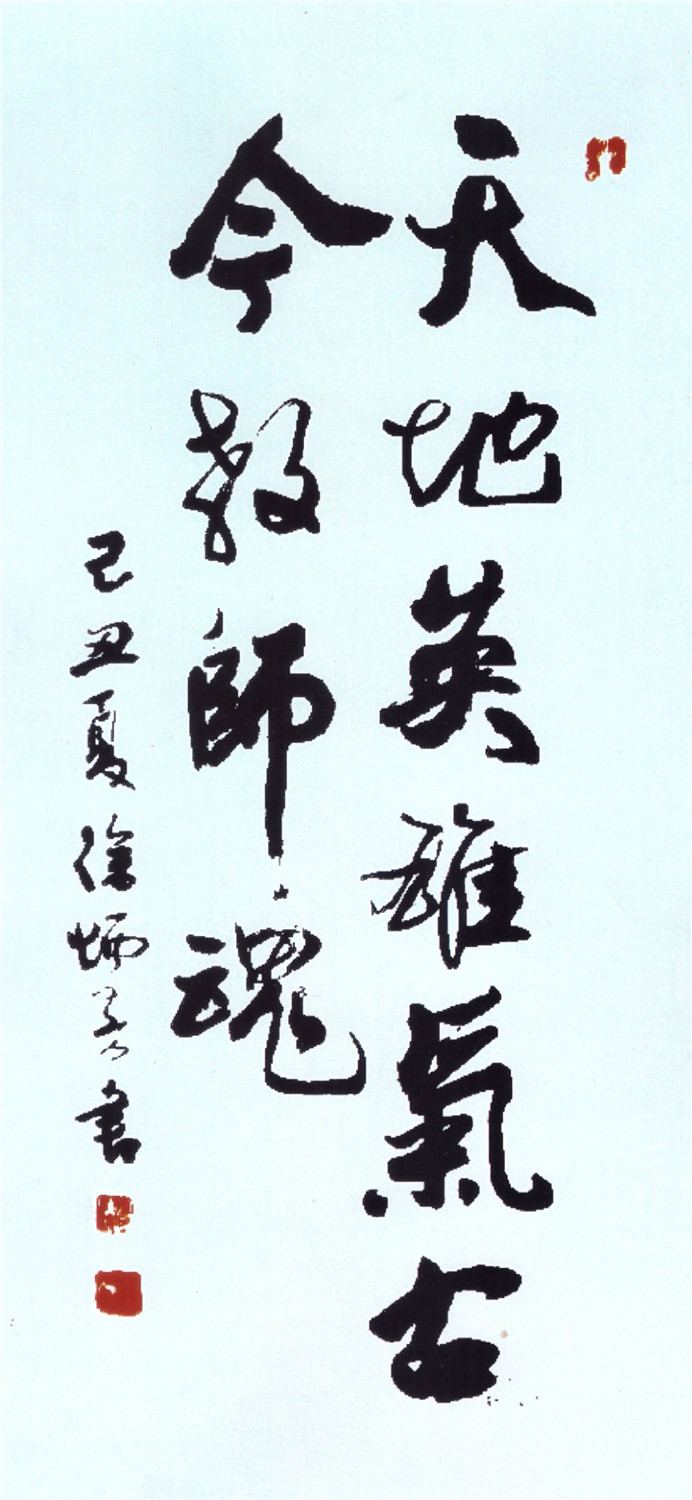 天地英雄氣古
今教師魂
己丑夏徐炳芳書